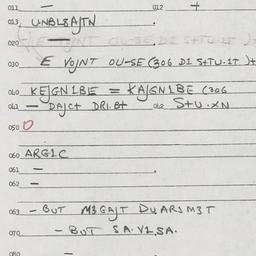 011 — 012 +
013, UNBL8AJTN
020
030 E VOJNT OU-SE (306 D1 S+TU.1T )+
040 KEJGN1BE = KAJGN1BE (306
041 — DAJCT DR1.8+ 042 S+U.XN
050 0
060 ARG1C
061 —
062 —
063 — BUT M3GAJT DUAR1M3T
070, — BUT SA.V1,SA.
080 —